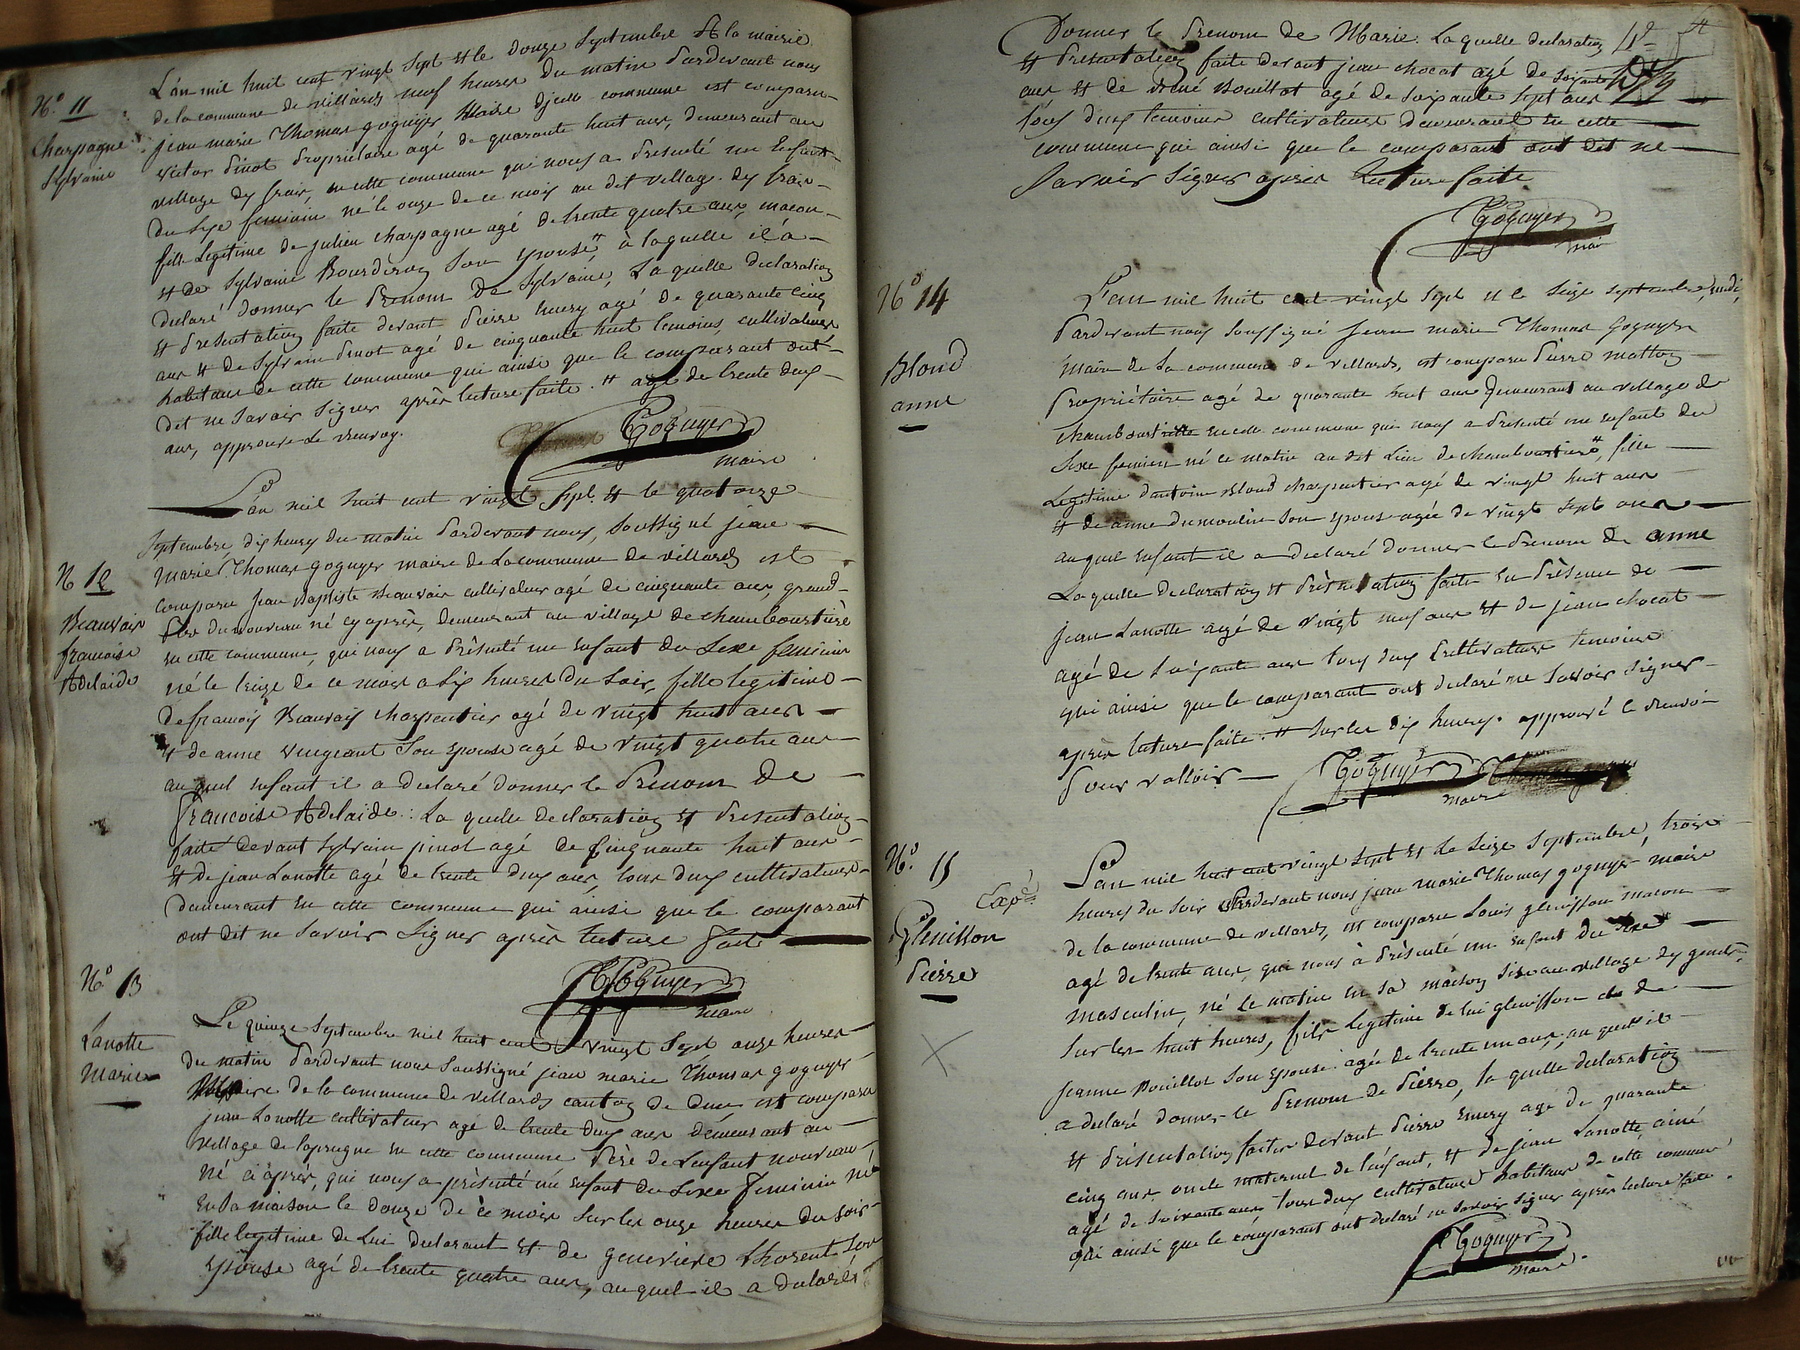 N.º 11
Charpagne
Sylvaine
L'an mil huit cent vingt sept et le douze Septembre A la mairie
de la commune de villards neuf heures du matin Pardevant nous
jean marie Thomas goguyer Maire d'icelle commune est comparu
victor Pinot Propriétaire agé de quarante huit ans, demeurant au
village dy frais, en cette commune qui nous a Présenté un Enfant
du Sexe feminin né le onze de ce mois au dit village dy frais
fille Legitime de julien charpagne agé de trente quatre ans, macon
et de Sylvaine Bourderoy Son epouse # à laquelle il a
declaré donner le Prenom de Sylvaine, La quelle declaration
et Presentation faite devant Pierre Emery agé de quarante cinq
ans et de Sylvain Pinot agé de cinquante huit temoins, cultivateurs
habitans de cette commune qui ainsi que le comparant ont
dit ne Savoir Signer après lecture faite. # agé de trente deux
ans, approuvé le renvoy.
Goguyer
maire
N 12
Beauvoir
francoise
Adelaide
L'an mil huit cent vingt Sept. et le quatorze
Septembre, dix heures du matin Pardevant nous, Soussigné jean
marie Thomas goguyer maire de La commune de villards est
comparu Jean Baptiste Beauvoir cultivateur agé de cinquante ans, grand
Père du nouveau né cy après, demeurant au village de chambourtière
en cette commune, qui nous a Présenté un Enfant du Sexe feminin
né le treize de ce mois a Six heures du Soir, fille legitime
de françois Beauvoir charpentier agé de vingt huit ans
et de anne vingeant Son Epouse agé de vingt quatre ans
au quel enfant il a declaré donner le Prenom de
francoise Adelaide: La quelle declaration et Presentation
faite devant Sylvain pinot agé de Cinquante huit ans
et de jean Lanotte agé de trente deux ans, tous deux cultivateurs
demeurant en cette commune qui ainsi que le comparant
ont dit ne Savoir Signer après lecture faite
Goguyer
maire
N.º 13
Lanotte
Marie
Le quinze Septembre mil huit cent vingt Sept onze heures
du matin Pardevant nous Soussigné jean marie Thomas goguyer
Maire de la commune de villards canton de Dun est comparu
jean Lanotte cultivateur agé de trente deux ans demeurant au
village de laprugne en cette commune Père de L'enfant nouveau
né ci après, qui nous a présenté un Enfant du Sexe Feminin né
En Sa maison le douze de ce mois Sur les onze heures du soir
fille legitime de Lui declarant et de genevieve thorent Son
Epouse agé de trente quatre ans, au quel il a declaré
Donner le Prenom de Marie. La quelle declaration
et Presentation faite devant jean chocat agé de soixante
ans et de René Bouillot agé de Soixante Sept ans
tous deux temoins cultivateurs demeurant en cette
commune qui ainsi que le comparant ont dit ne
Savoir Signer après lecture faite
Goguyer
maire
N.º 14
Blond
anne
L'an mil huit cent vingt Sept et le Seize septembre, midi,
Pardevant nous Soussigné Jean marie Thomas Goguyer
maire de La commune de villards, est comparu Pierre
Propriétaire agé de quarante huit ans Demeurant au village de
en cette commune qui nous a Présenté un enfant du
Sexe feminin né ce matin au dit Lieu de chambourtière #, fille
Legitime d'antoine Blond charpentier agé de vingt huit ans
et de anne dumoulin Son epouse agée de vingt Sept ans
au quel enfant il a Declaré donner le Prenom de anne
La quelle declaration et Présentation faite En Présence de
jean Lanotte agé de vingt neuf ans et de jean chocat
agé de Soixante ans tous deux Cultivateurs temoins
qui ainsi que le comparant ont declaré ne Savoir Signer
après lecture faite. # Sur les dix heures. approuvé le renvoi
Pour valloir
Goguyer
maire
N.º 15
Exp.é
Glenisson
Pierre
L'an mil huit cent vingt Sept et le Seize Septembre, trois
heures du Soir Pardevant nous jean marie Thomas goguyer, maire
de la commune de villards, est comparu Louis glenisson macon
agé de trente ans, qui nous à Présenté un enfant du Sexe
masculin, né Ce matin en Sa maison Sise au village dy
Sur les huit heures, fils legitime de lui glenisson et de
Jeanne Bouillot Son Epouse agée de trente un ans, au quel il
a declaré donner le Prenom de Pierre, la quelle declaration
et Présentation faites devant Pierre Emery agé de quarante
cinq ans oncle maternel de l'enfant, et de jean Lanotte ainé
agé de Soixante ans tous deux cultivateurs habitans de cette commune
qui ainsi que le comparant ont declaré ne Savoir Signer après lecture faite.
Goguyer
maire.